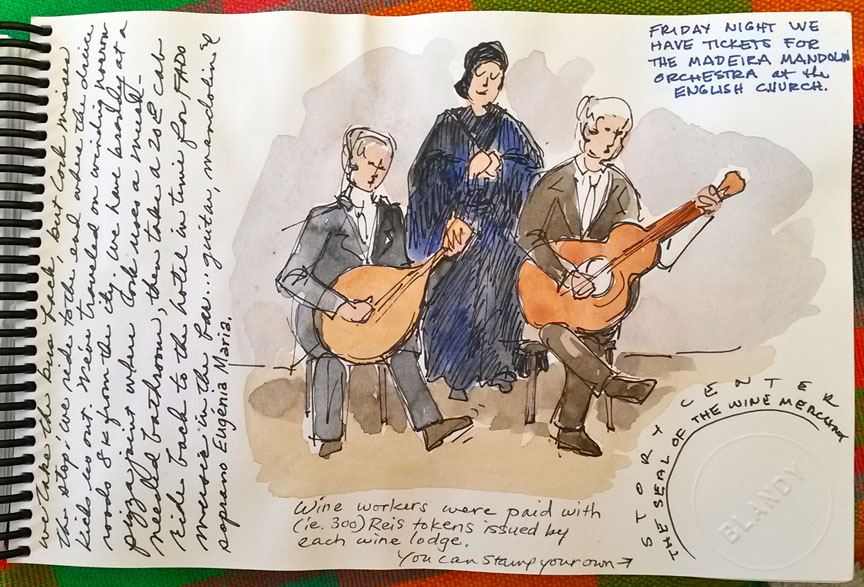 we take the bus back, but Cook misses
the stop! We ride to the end where the driver
kicks us out. We've traveled on winding narrow
roads 8K from the city. We have brandy at a
pizza joint where Cook uses a much-
needed bathroom, then take a 20€ cab
ride back to the hotel in time for FADO
music in the bar... guitar, mandolin &
soprano Eugenia Maria.
FRIDAY NIGHT WE
HAVE TICKETS FOR
THE MADEIRA MANDOLIN
ORCHESTRA at the
ENGLISH CHURCH.
Wine workers were paid with
(ie. 300) Reis tokens issued by
each wine lodge.
You can stamp your own →
STORY CENTER
THE SEAL OF THE WINE MERCHANT
BLANDY